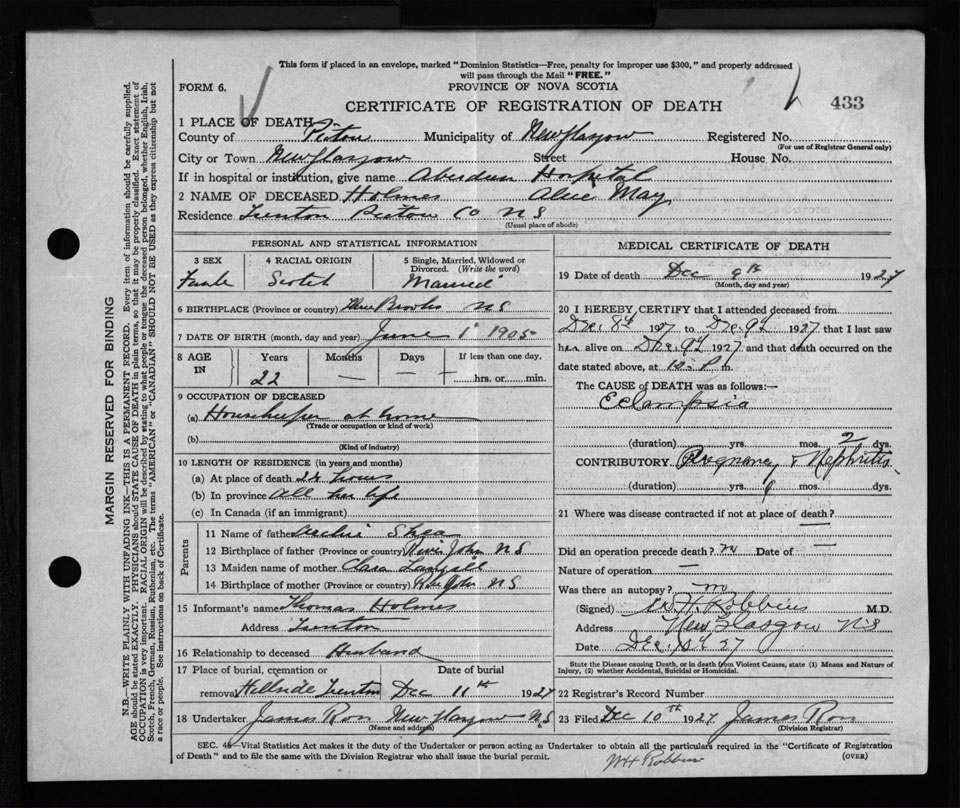 This form if placed in an envelope, marked "Dominion Statistics—Free, penalty for improper use $300," and properly addressed
will pass through the Mail "FREE."
FORM 6.
PROVINCE OF NOVA SCOTIA
CERTIFICATE OF REGISTRATION OF DEATH
433
1 PLACE OF DEATH
County of Pictou Municipality of New Glasgow Registered No.
(For use of Registrar General only)
City or Town New Glasgow Street House No.
If in hospital or institution, give name Aberdeen Hospital
2 NAME OF DECEASED Holmes Alice May
Residence Trenton Pictou Co NS
(Usual place of abode)
PERSONAL AND STATISTICAL INFORMATION
3 SEX
Female
4 RACIAL ORIGIN
Scotch
5 Single, Married, Widowed or
Divorced. (Write the word)
"Married"
6 BIRTHPLACE (Province or country) Three Brooks NS
7 DATE OF BIRTH (month, day and year) June 1 1905
8 AGE IN
Years Months Days If less than one day,
22 — — — hrs. or min.
9 OCCUPATION OF DECEASED
(a) Housekeeper at home
(Trade or occupation or kind of work)
(b)
(Kind of industry)
10 LENGTH OF RESIDENCE (in years and months)
(a) At place of death 24 hours
(b) In province all her life
(c) In Canada (if an immigrant)
Parents
11 Name of father Shea
12 Birthplace of father (Province or country) River John NS
13 Maiden name of mother Clara Langill
14 Birthplace of mother (Province or country) River John NS
15 Informant's name Thomas Holmes
Address Trenton
16 Relationship to deceased Husband
17 Place of burial, cremation or Date of burial
removal Hillside Trenton Dec 11th 1927
18 Undertaker James Ross New Glasgow N.S
(Name and address)
MEDICAL CERTIFICATE OF DEATH
19 Date of death Dec 9th 1927
(Month, day and year)
20 I HEREBY CERTIFY that I attended deceased from
Dec. 8th 1927 to Dec. 9th 1927 that I last saw
her alive on Dec 9th 1927 and that death occurred on the
date stated above, at 10 P. m.
The CAUSE of DEATH was as follows:—
Eclampsia
(duration) yrs. mos. 2 dys.
CONTRIBUTORY Pregnancy & Nephritis
(duration) yrs. mos. dys.
21 Where was disease contracted if not at place of death? —
Did an operation precede death? no Date of —
Nature of operation —
Was there an autopsy? no
(Signed) W. H. Robbins M.D.
Address New Glasgow N.S
Date Dec. 27
State the Disease causing Death, or in death from Violent Causes, state (1) Means and Nature of
Injury, (2) whether Accidental, Suicidal or Homicidal.
22 Registrar's Record Number
23 Filed Dec 10th 1927 James Ross
(Division Registrar)
SEC. 48—Vital Statistics Act makes it the duty of the Undertaker or person acting as Undertaker to obtain all the particulars required in the "Certificate of Registration
of Death" and to file the same with the Division Registrar who shall issue the burial permit.
(OVER)
WH Robbins
MARGIN RESERVED FOR BINDING
N.B.—WRITE PLAINLY WITH UNFADING INK—THIS IS A PERMANENT RECORD. Every item of information should be carefully supplied.
AGE should be stated EXACTLY. PHYSICIANS should STATE CAUSE OF DEATH in plain terms, so that it may be properly classified. Exact statement of
OCCUPATION is very important. RACIAL ORIGIN will be described by stating to what people or tongue the deceased person belonged, whether English, Irish,
Scotch, French, German, Russian, Ruthenian, etc. The terms "AMERICAN" or "CANADIAN" SHOULD NOT BE USED as they express citizenship but not
a race or people. See instructions on back of Certificate.